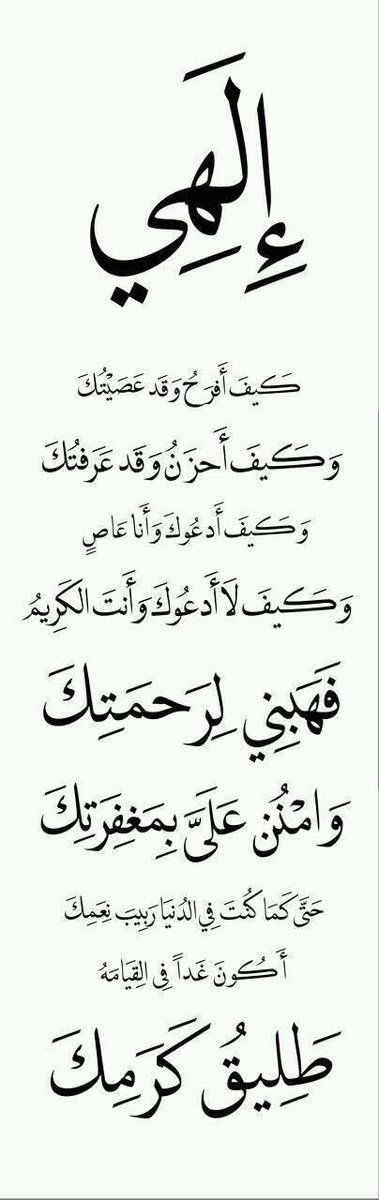 إِلَهِي
كَيفَ أَفرَحُ وَقَد عَصَيْتُكَ
وَكَيفَ أَحزَنُ وَقَد عَرَفتُكَ
وَكَيفَ أَدعُوكَ وَأَنا عَاصٍ
وَكَيفَ لَا أَدعُوكَ وَأَنتَ الكَرِيمُ
فَهَبنِي لِرَحمَتِكَ
وَامْنُن عَلَىَّ بِمَغفِرَتِكَ
حَتَّى كَمَا كُنتَ فِي الدُنيَا رَبِيبَ نِعَمِكَ
أَكُونَ غَداً فِي القِيَامَه
طَلِيقُ كَرَمِكَ